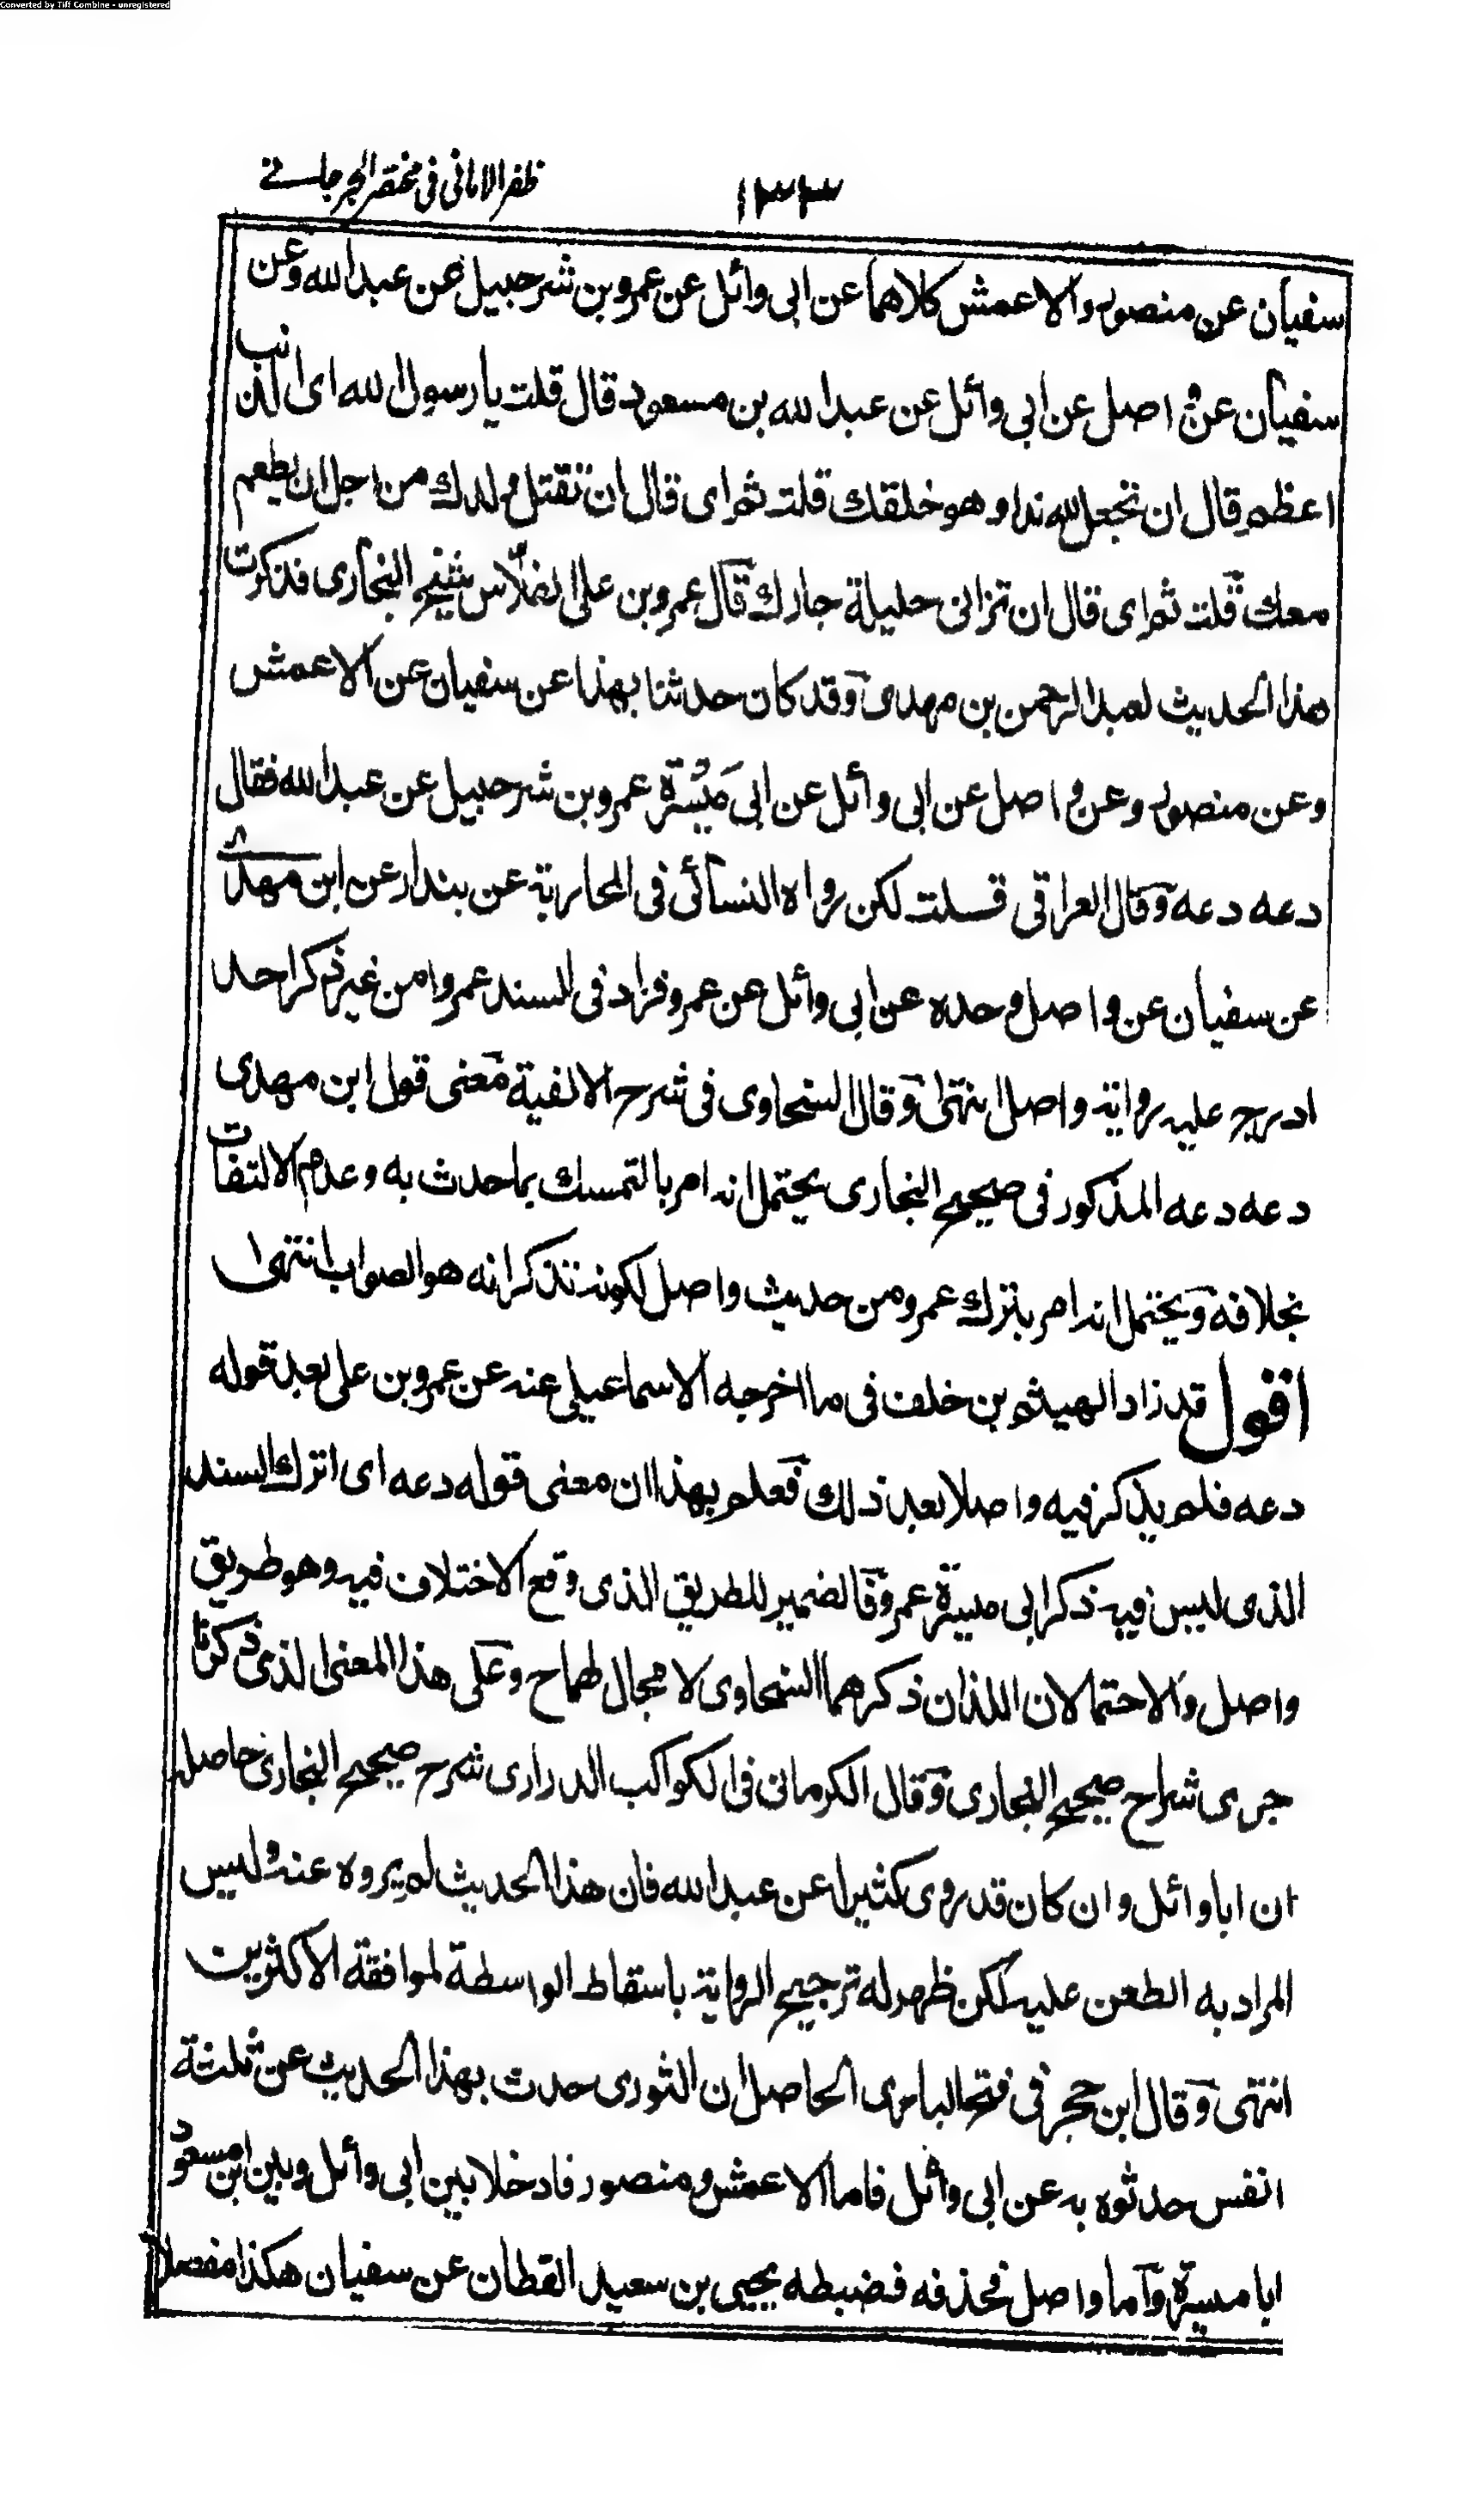 Converted by Tiff Combine - unregistered
١٣٣ ظفر الامانی فی مختصر الجرجانے
سفيان عن منصور والاعمش كلاهما عن ابی وائل عن عمرو بن شرحبيل عن عبد الله وعن
سفيان عن واصل عن ابی وائل عن عبد الله بن مسعود قال قلت يا رسول الله ای الذنب
اعظم قال ان تجعل لله ندا وهو خلقك قلت ثم ای قال ان تقتل ولدك من اجل ان يطعم
معك قلت ثم ای قال ان تزانی حليلة جارك قال عمرو بن علی الفلّاس شيخ البخاری فذكرت
هذا الحديث لعبد الرحمن بن مهدی وقد كان حدثنا بهذا عن سفيان عن الاعمش
وعن منصور وعن واصل عن ابی وائل عن ابی مَيْسَرة عمرو بن شرحبيل عن عبد الله فقال
دعه دعه وقال العراقی قلت لكن رواه النسائی فی المحاربة عن بندار عن ابن مهدی
عن سفيان عن واصل وحده عن ابی وائل عن عمرو فزاد فی السند عمروا من غير ذكر احد
ادرج عليه رواية واصل انتهى وقال السخاوی فی شرح الالفية معنى قول ابن مهدی
دعه دعه المذكور فی صحيح البخاری يحتمل انه امر بالتمسك بما حدث به وعدم الالتفات
بخلافه ويحتمل انه امر بترك عمرو من حديث واصل لكونه تذكر انه هو الصواب انتهى
اقول قد زاد الهيثم بن خلف فی ما اخرجه الاسماعيلی عنه عن عمرو بن علی بعد قوله
دعه فلم يذكر فيه واصلا بعد ذلك فعلم بهذا ان معنى قوله دعه ای اترك السند
الذی ليس فيه ذكر ابی ميسرة عمرو فالضمير للطريق الذی وقع الاختلاف فيه وهو طريق
واصل والاحتمالان اللذان ذكرهما السخاوی لا مجال لهما ح وعلى هذا المعنى الذی ذكرنا
جری شراح صحيح البخاری وقال الكرمانی فی الكواكب الدراری شرح صحيح البخاری حاصله
ان ابا وائل وان كان قد روی كثيرا عن عبد الله فان هذا الحديث لم يروه عنه وليس
المراد به الطعن عليه لكن ظهر له ترجيح الرواية باسقاط الواسطة لموافقة الاكثرين
انتهى وقال ابن حجر فی فتح الباری الحاصل ان الثوری حدث بهذا الحديث عن ثلثة
انفس حدثوه به عن ابی وائل فاما الاعمش ومنصور فادخلا بين ابی وائل وبين ابن مسعود
ابا ميسرة وآما واصل فحذفه فضبطه يحيى بن سعيد القطان عن سفيان هكذا مفصلا